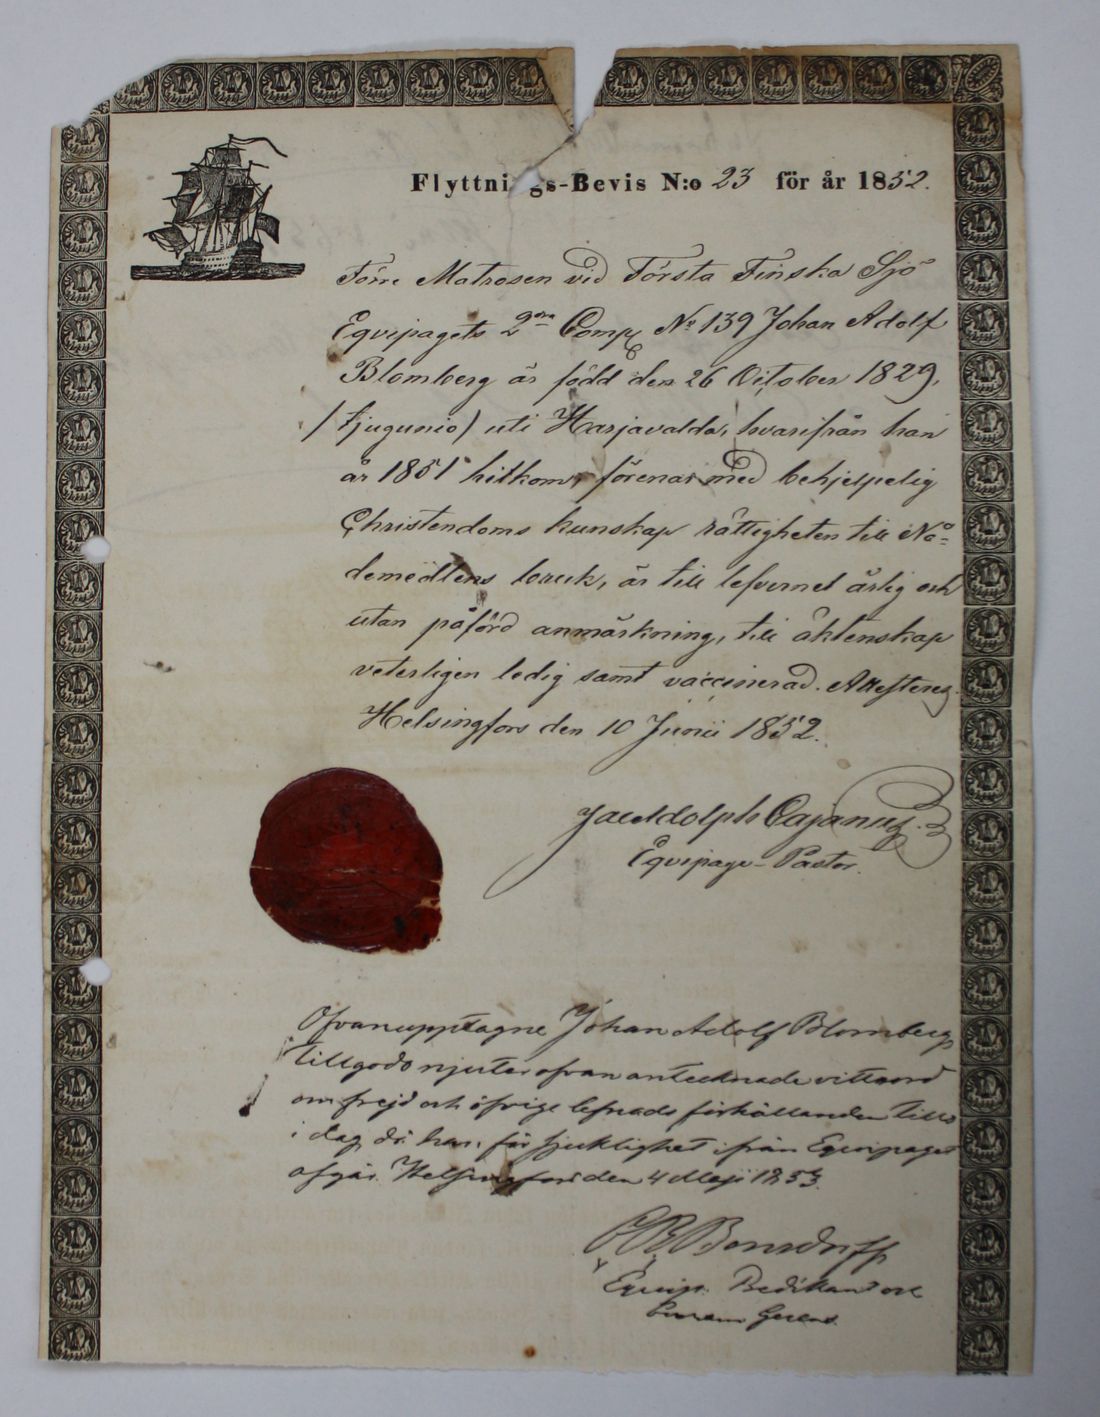 Flyttnings-Bevis N:o 23 för år 1852.
Förre Matrosen vid Första Finska Sjö
Eqvipagets 2dra Comp. No 139 Johan Adolf
Blomberg är född den 26 October 1829,
/tjugunio/ uti Harjavalda, hvarifrån han
år 1851 hitkom, förenar med behjelpelig
Christendoms kunskap rättigheten till Nå=
demedlens bruk, är till lefvernet ärlig och
utan påförd anmärkning, till äktenskap
veterligen ledig samt vaccinerad. Attesterer
Helsingfors den 10 Junii 1852.
Jac Adolph Cajanus.
Eqvipage-Pastor.
Ofvanupptagne Johan Adolf Blomberg
tillgodo njuter ofvan antecknade vittnord
om frejd och öfrige lefnads förhållanden tills
i dag då han, för sjuklighet ifrån Eqvipaget
afgår. Helsingfors den 4 Maji 1853.
Bonsdorff
Eqvip. Predikant och
Gerens.